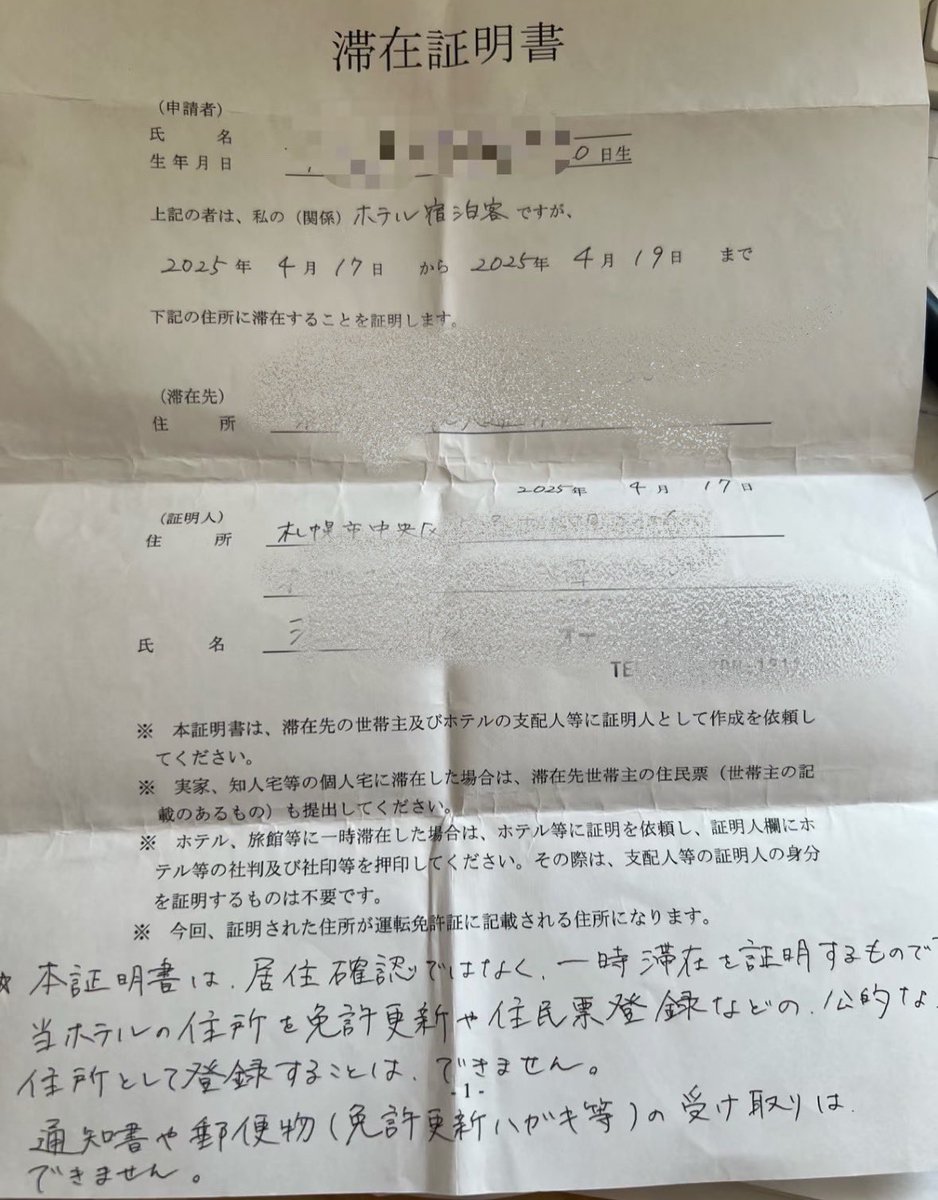 滞在証明書
(申請者)
氏 名
生年月日 0日生
上記の者は、私の(関係)ホテル宿泊客ですが、
2025年 4月 17日 から 2025年 4月 19日 まで
下記の住所に滞在することを証明します。
(滞在先)
住 所
2025年 4月 17日
(証明人)
住 所 札幌市中央区
氏 名
※ 本証明書は、滞在先の世帯主及びホテルの支配人等に証明人として作成を依頼し
てください。
※ 実家、知人宅等の個人宅に滞在した場合は、滞在先世帯主の住民票(世帯主の記
載のあるもの)も提出してください。
※ ホテル、旅館等に一時滞在した場合は、ホテル等に証明を依頼し、証明人欄にホ
テル等の社判及び社印等を押印してください。その際は、支配人等の証明人の身分
を証明するものは不要です。
※ 今回、証明された住所が運転免許証に記載される住所になります。
☆ 本証明書は、居住確認ではなく、一時滞在を証明するもので
当ホテルの住所を免許更新や住民票登録などの、公的な
住所として登録することは、できません。
-1-
通知書や郵便物(免許更新ハガキ等)の受け取りは
できません。